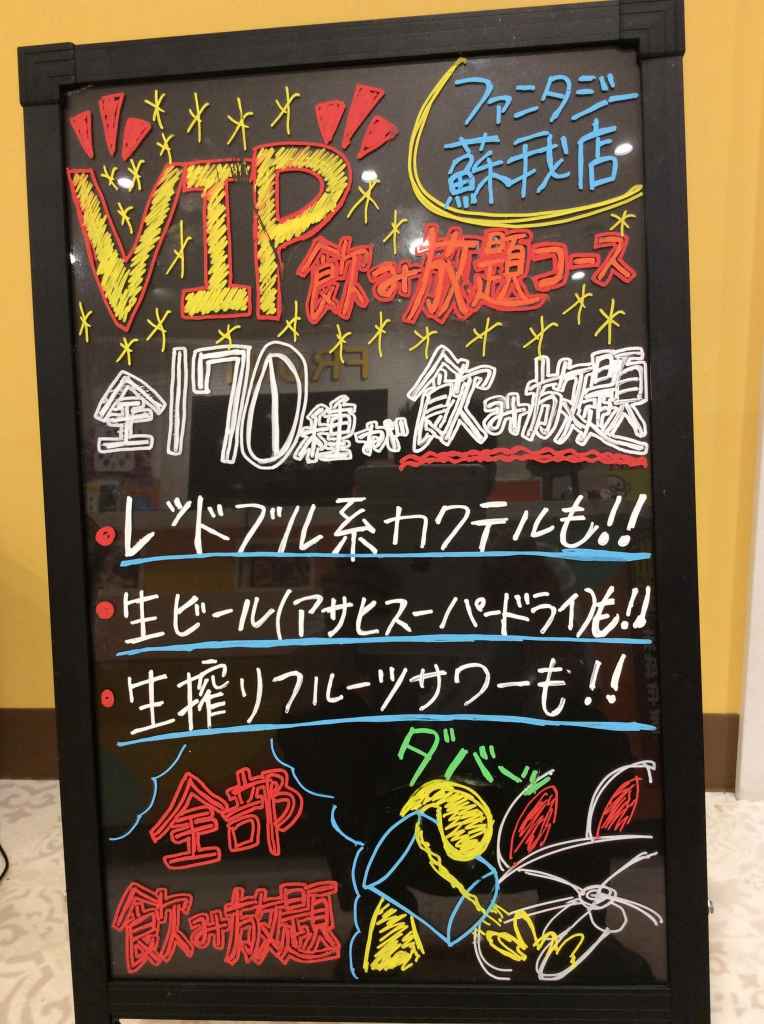 ファンタジー
蘇我店
VIP飲み放題コース
全170種が飲み放題
・レッドブル系カクテルも!!
・生ビール(アサヒスーパードライ)も!!
・生搾りフルーツサワーも!!
ダバーッ
全部
飲み放題